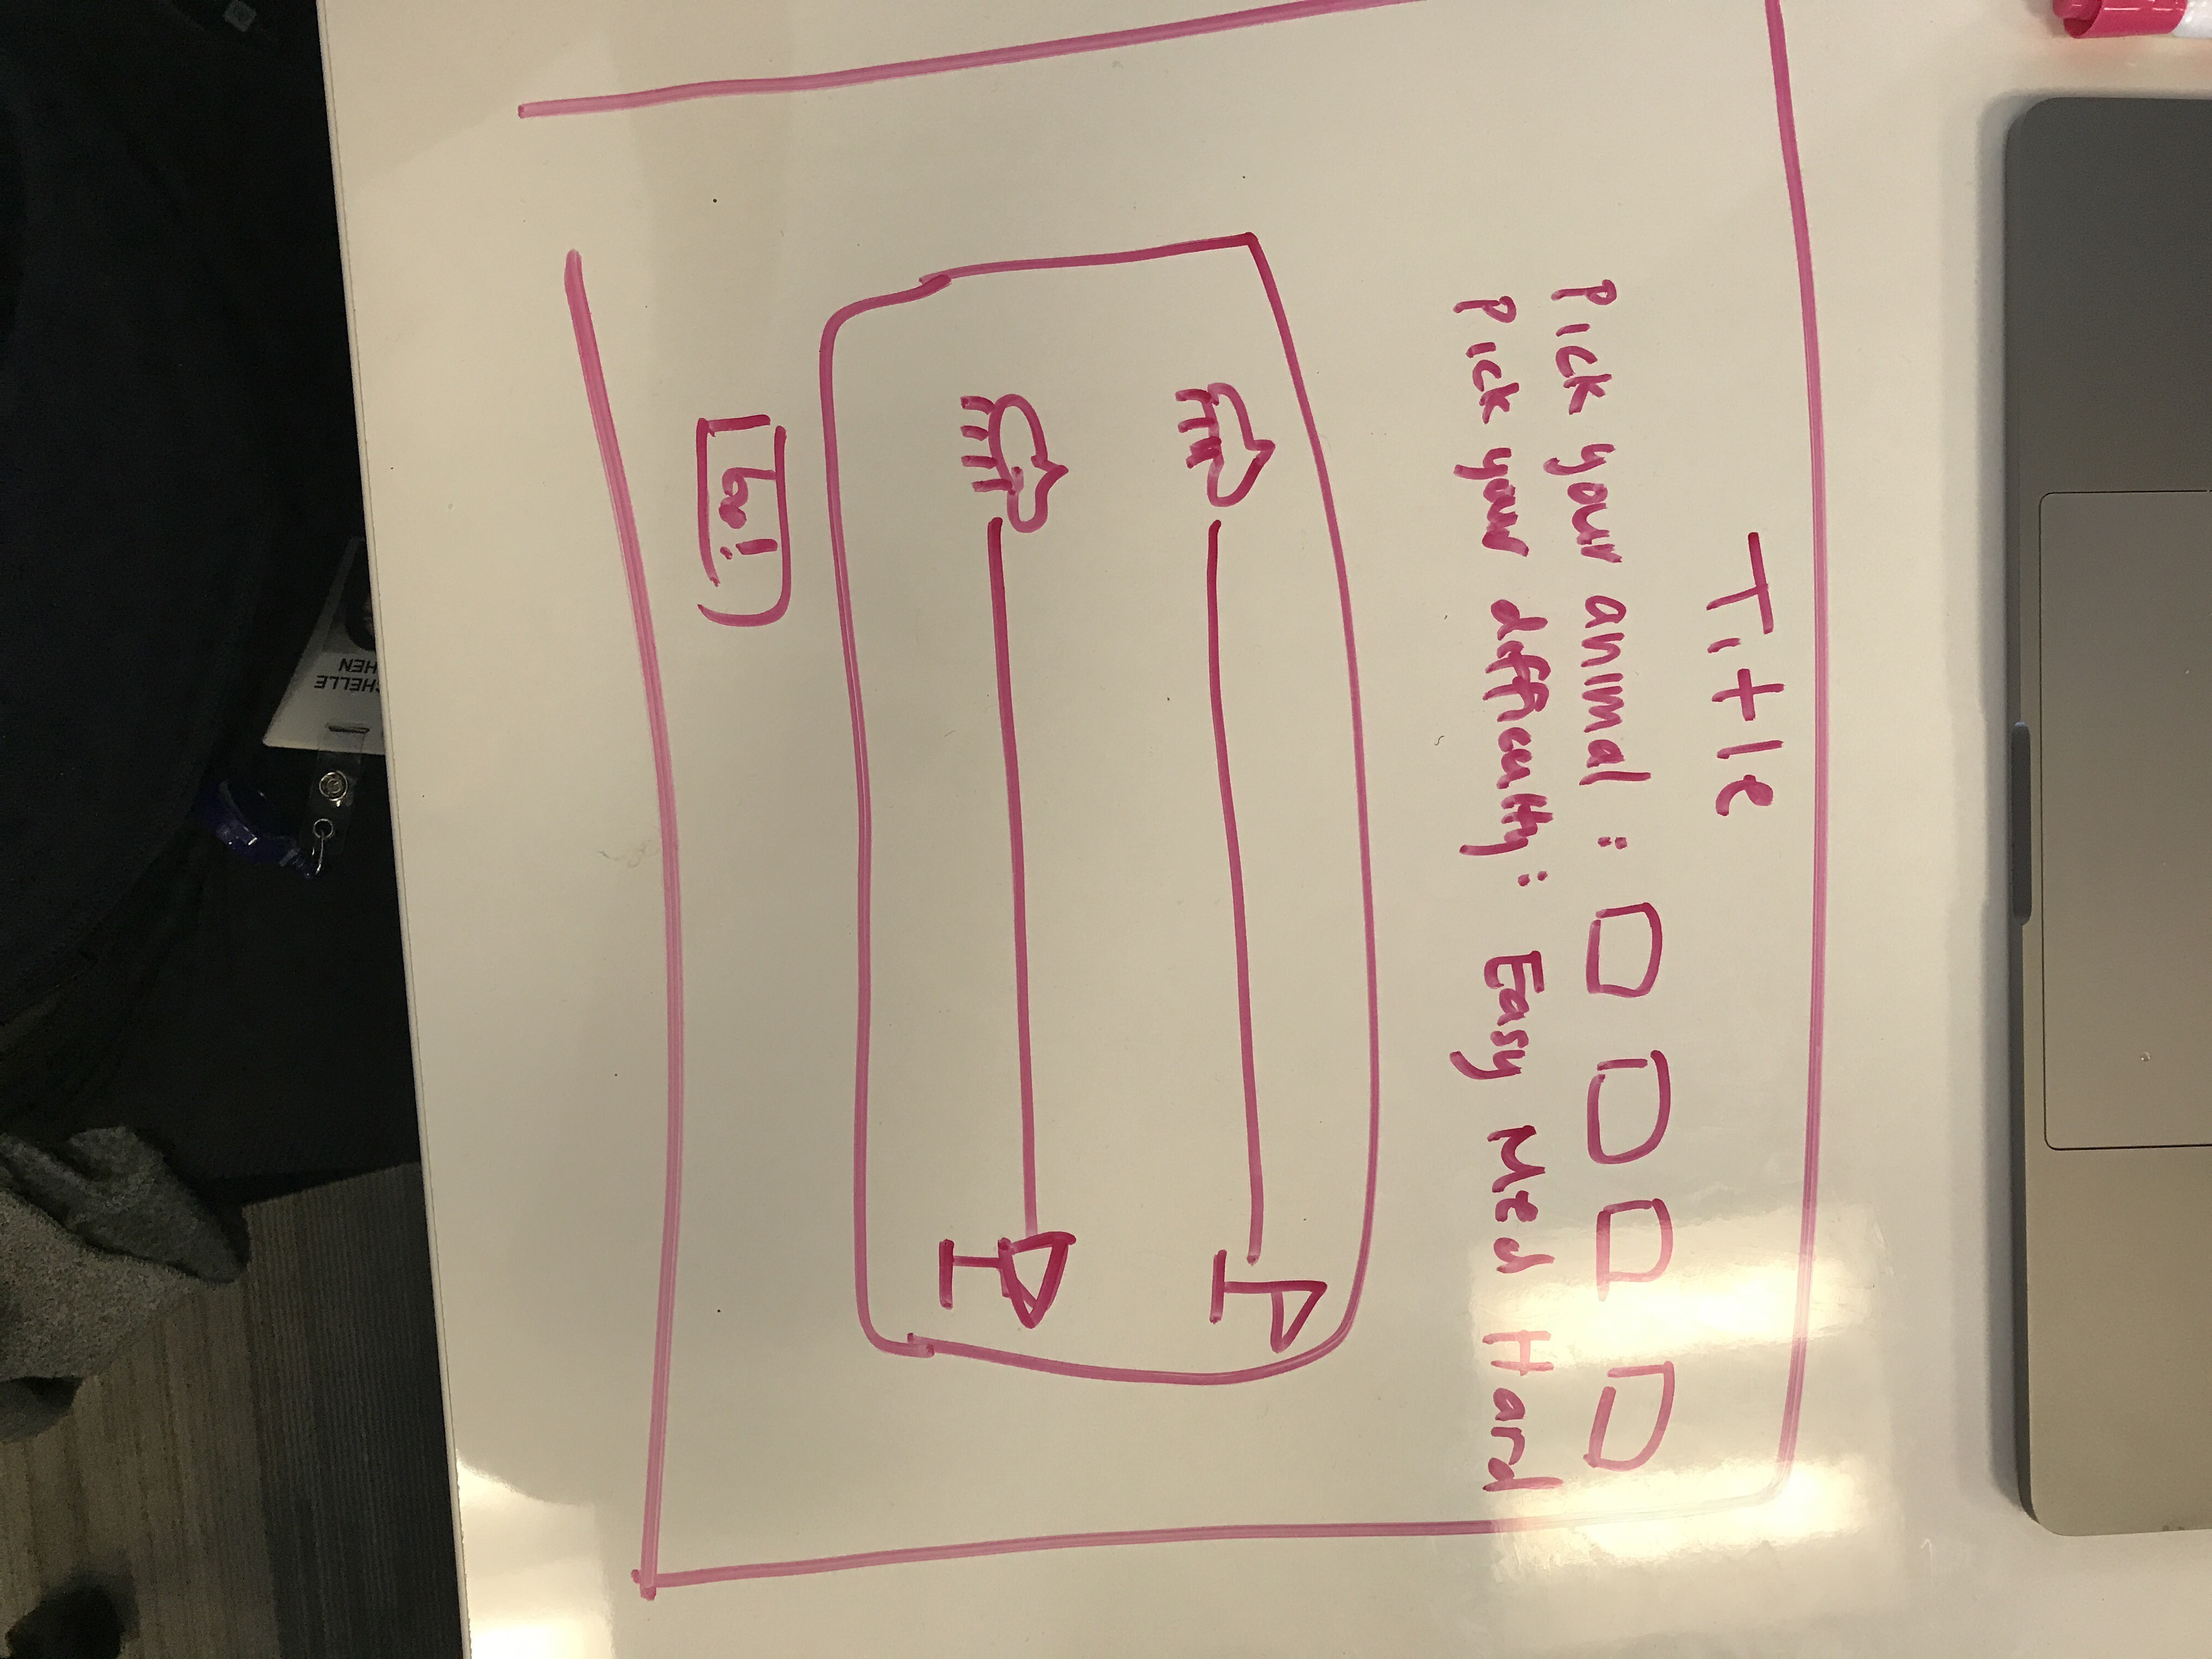 Title
Pick your animal:
Pick your difficulty: Easy Med Hard
Go!
CHELLE
HEN